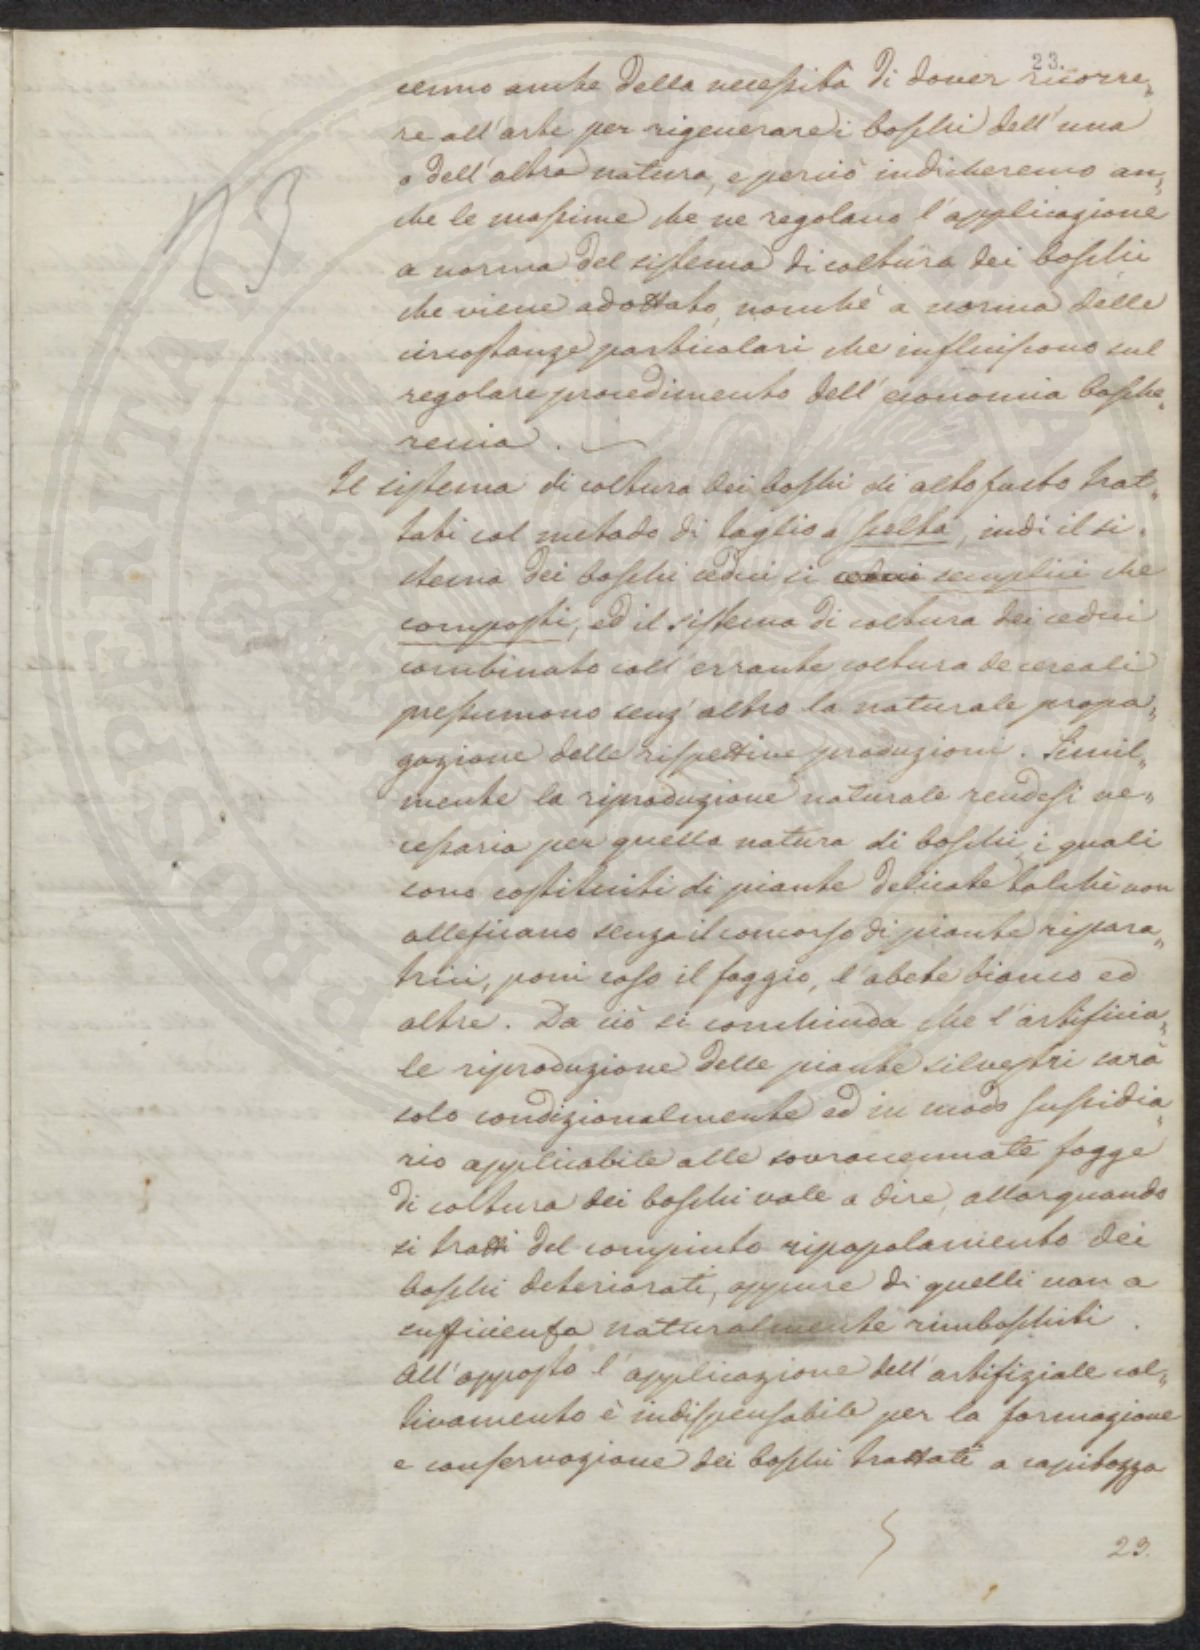 23.
cenno anche della necessità di dover ricorre„
re all'arte per rigenerare i boschi dell'una
o dell'altra natura, e perciò indicheremo an„
che le massime che ne regolano l'applicazione
a norma del sistema di coltura dei boschi
che viene adottato, nonchè a norma delle
circostanze particolari che influiscono sul
regolare procedimento dell'economia bosche„
reccia.
Il sistema di coltura dei boschi di alto fusto trat„
tati col metodo di taglio a scelta, indi il si„
stema dei boschi cedui si cedui semplici che
composti, ed il sistema di coltura dei cedui
combinato coll'errante coltura de cereali
presumono senz'altro la naturale propa„
gazione delle rispettive produzioni. Simil„
mente la riproduzione naturale rendesi ne„
cessaria per quella natura di boschi, i quali
sono costituiti di piante delicate talchè non
alleficano senza il concorso di piante ripara„
trici, poni caso il faggio, l'abete bianco ed
altre. Da ciò si conchiuda che l'artificia„
le riproduzione delle piante silvestri sarà
solo condizionalmente ed in modo sussidia„
rio applicabile alle sovracennate fogge
di coltura dei boschi vale a dire, allorquando
si tratti del compiuto ripopolamento dei
boschi deteriorati, oppure di quelli non a
sufficienza naturalmente rimboschiti.
All'opposto l'applicazione dell'artifiziale col„
tivamento è indispensabile per la formazione
e conservazione dei boschi trattati a capitozza
23.
23
PROSPERITATI PUBLICAE